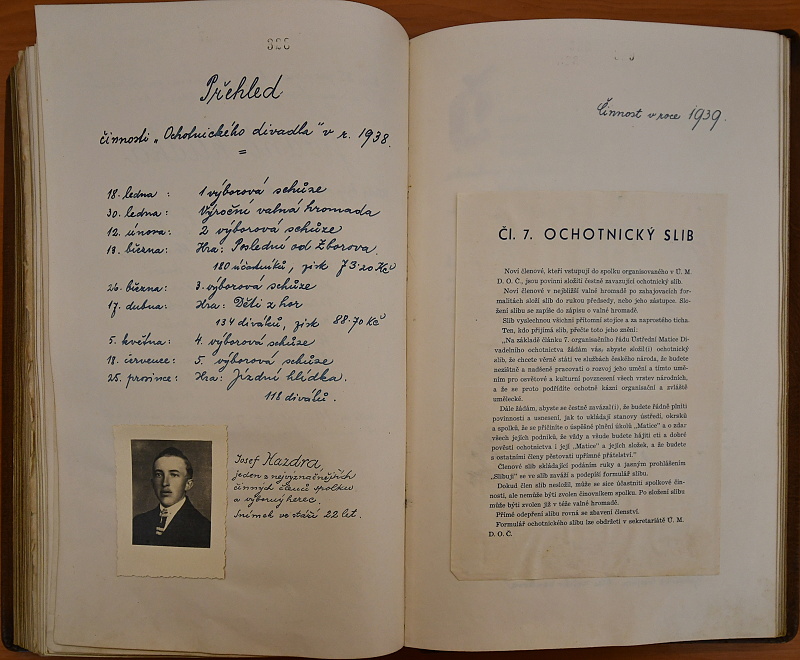 Přehled
činnosti „Ochotnického divadla" v r. 1938.
18. ledna : 1 výborová schůze
30. ledna : Výroční valná hromada
12. února : 2 výborová schůze
13. března : Hra: Poslední od Zborova.
180 účadníků, zisk 73·20 Kč
26. března : 3. výborová schůze
17. dubna : Hra: Děti z hor
134 diváků, zisk 88·70 Kč
5. května : 4. výborová schůze
18. července : 5. výborová schůze
25. prosince : Hra: Jízdní hlídka.
118 diváků.
Josef Kazdra,
jeden z nejvýznačnějších
činných členů spolku
a výborný herec.
Snímek ve stáří 22 let.
Činnost v roce 1939.
Čl. 7. OCHOTNICKÝ SLIB
Noví členové, kteří vstupují do spolku organisovaného v Ú. M.
D. O. Č., jsou povinni složiti čestně zavazující ochotnický slib.
Noví členové v nejbližší valné hromadě po zahajovacích for-
malitách složí slib do rukou předsedy, nebo jeho zástupce. Slo-
žení slibu se zapíše do zápisu o valné hromadě.
Slib vyslechnou všichni přítomní stojíce a za naprostého ticha.
Ten, kdo přijímá slib, přečte toto jeho znění:
„Na základě článku 7. organisačního řádu Ústřední Matice Di-
vadelního ochotnictva žádám vás, abyste složil(i) ochotnický
slib, že chcete věrně státi ve službách českého národa, že budete
nezištně a nadšeně pracovati o rozvoj jeho umění a tímto umě-
ním pro osvětové a kulturní povznesení všech vrstev národních,
a že se proto podřídíte ochotně kázni organisační a zvláště
umělecké.
Dále žádám, abyste se čestně zavázal(i), že budete řádně plniti
povinnosti a usnesení, jak to ukládají stanovy ústředí, okrsků
a spolků, že se přičiníte o úspěšné plnění úkolů „Matice" a o zdar
všech jejích podniků, že vždy a všude budete hájiti cti a dobré
pověsti ochotnictva i její „Matice" a jejích složek, a že budete
s ostatními členy pěstovati upřímné přátelství."
Členové slib skládající podáním ruky a jasným prohlášením
„Slibuji" ve slib zaváží a podepíší formulář slibu.
Dokud člen slib nesložil, může se sice účastniti spolkové čin-
nosti, ale nemůže býti zvolen činovníkem spolku. Po složení slibu
může býti zvolen již v téže valné hromadě.
Přímé odepření slibu rovná se zbavení členství.
Formulář ochotnického slibu lze obdržeti v sekretariátě Ú. M.
D. O. Č.